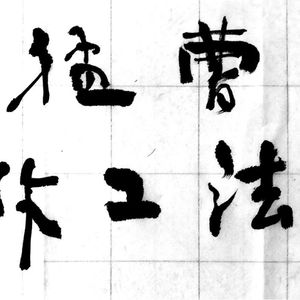 猛曹
作工法